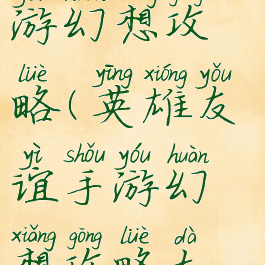 游幻想攻
lüè yīng xióng yǒu
略(英雄友
yì shǒu yóu huàn
谊手游幻
xiǎng gōng lüè dà